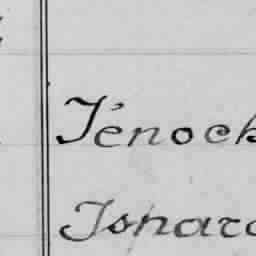 Ténock
Isnard